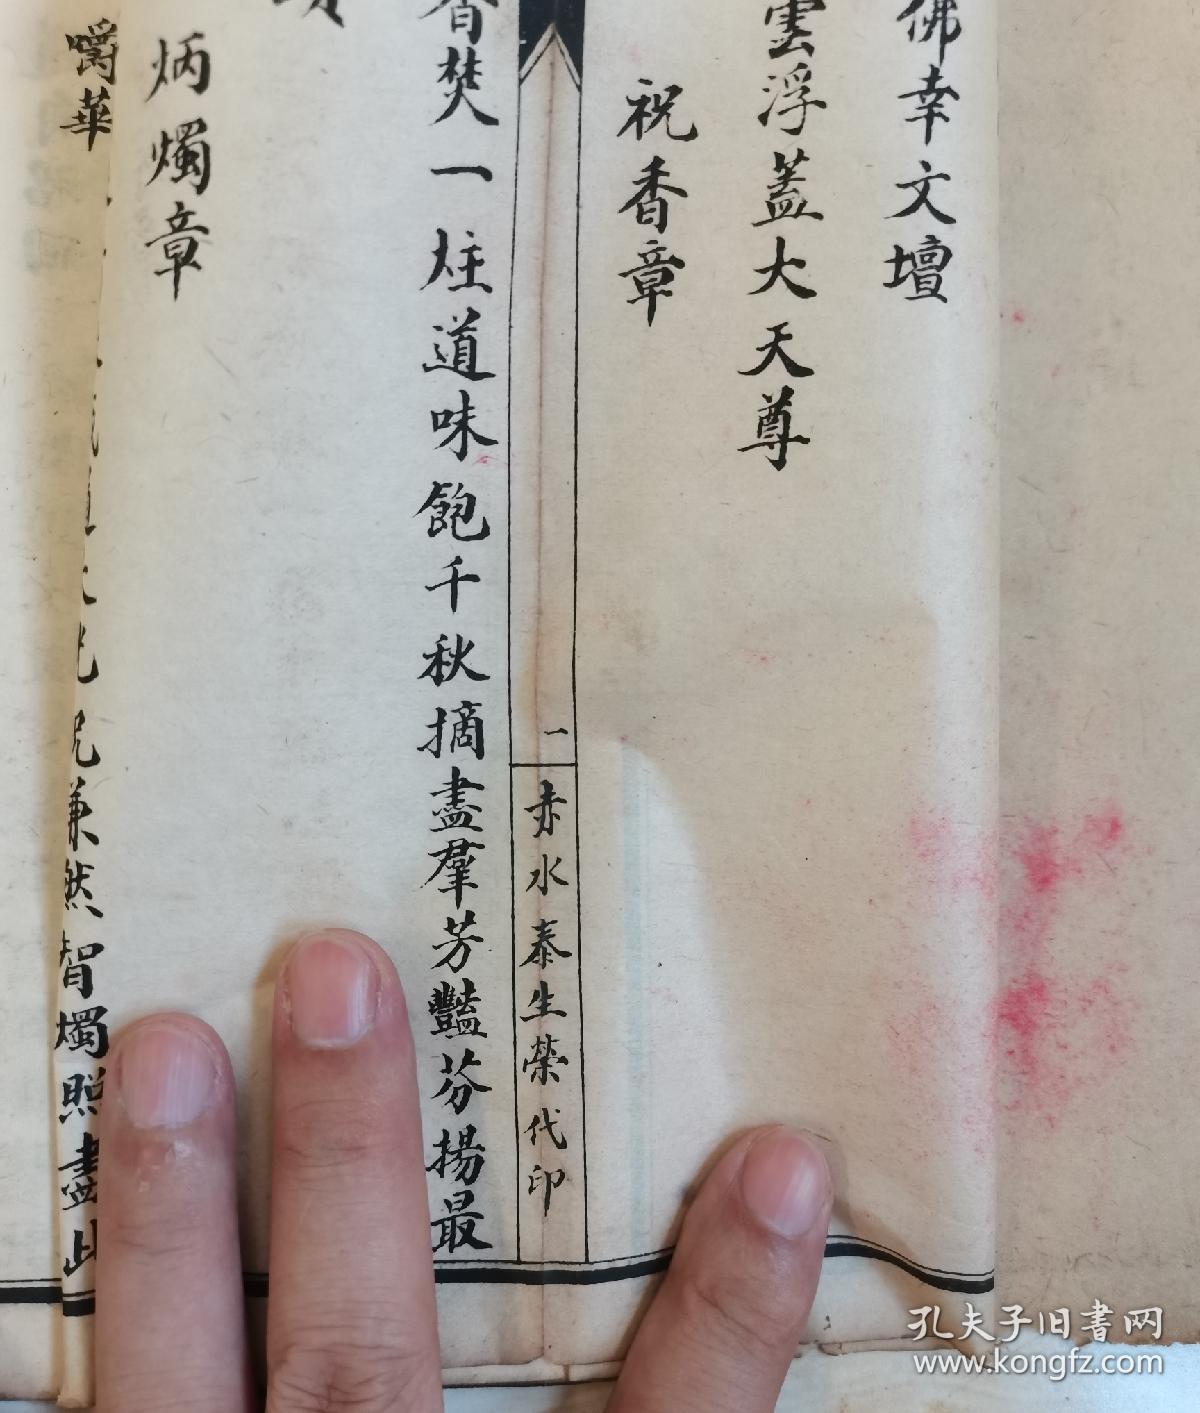 佛幸文壇
雲浮蓋大天尊
祝香章
一
赤水泰生榮代印
香焚一炷道味飽千秋摘盡羣芳豔芬揚最
炳燭章
嚼華
兼然智燭照盡此
孔夫子旧書网
www.kongfz.com